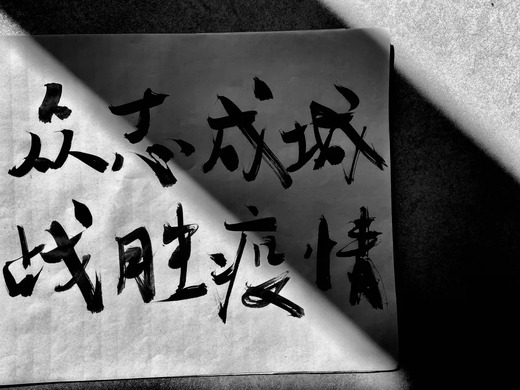 众志成城
战胜疫情